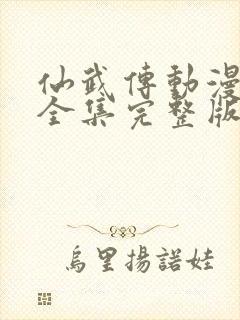 仙武傳動漫
全集完整版
烏里揚諾娃